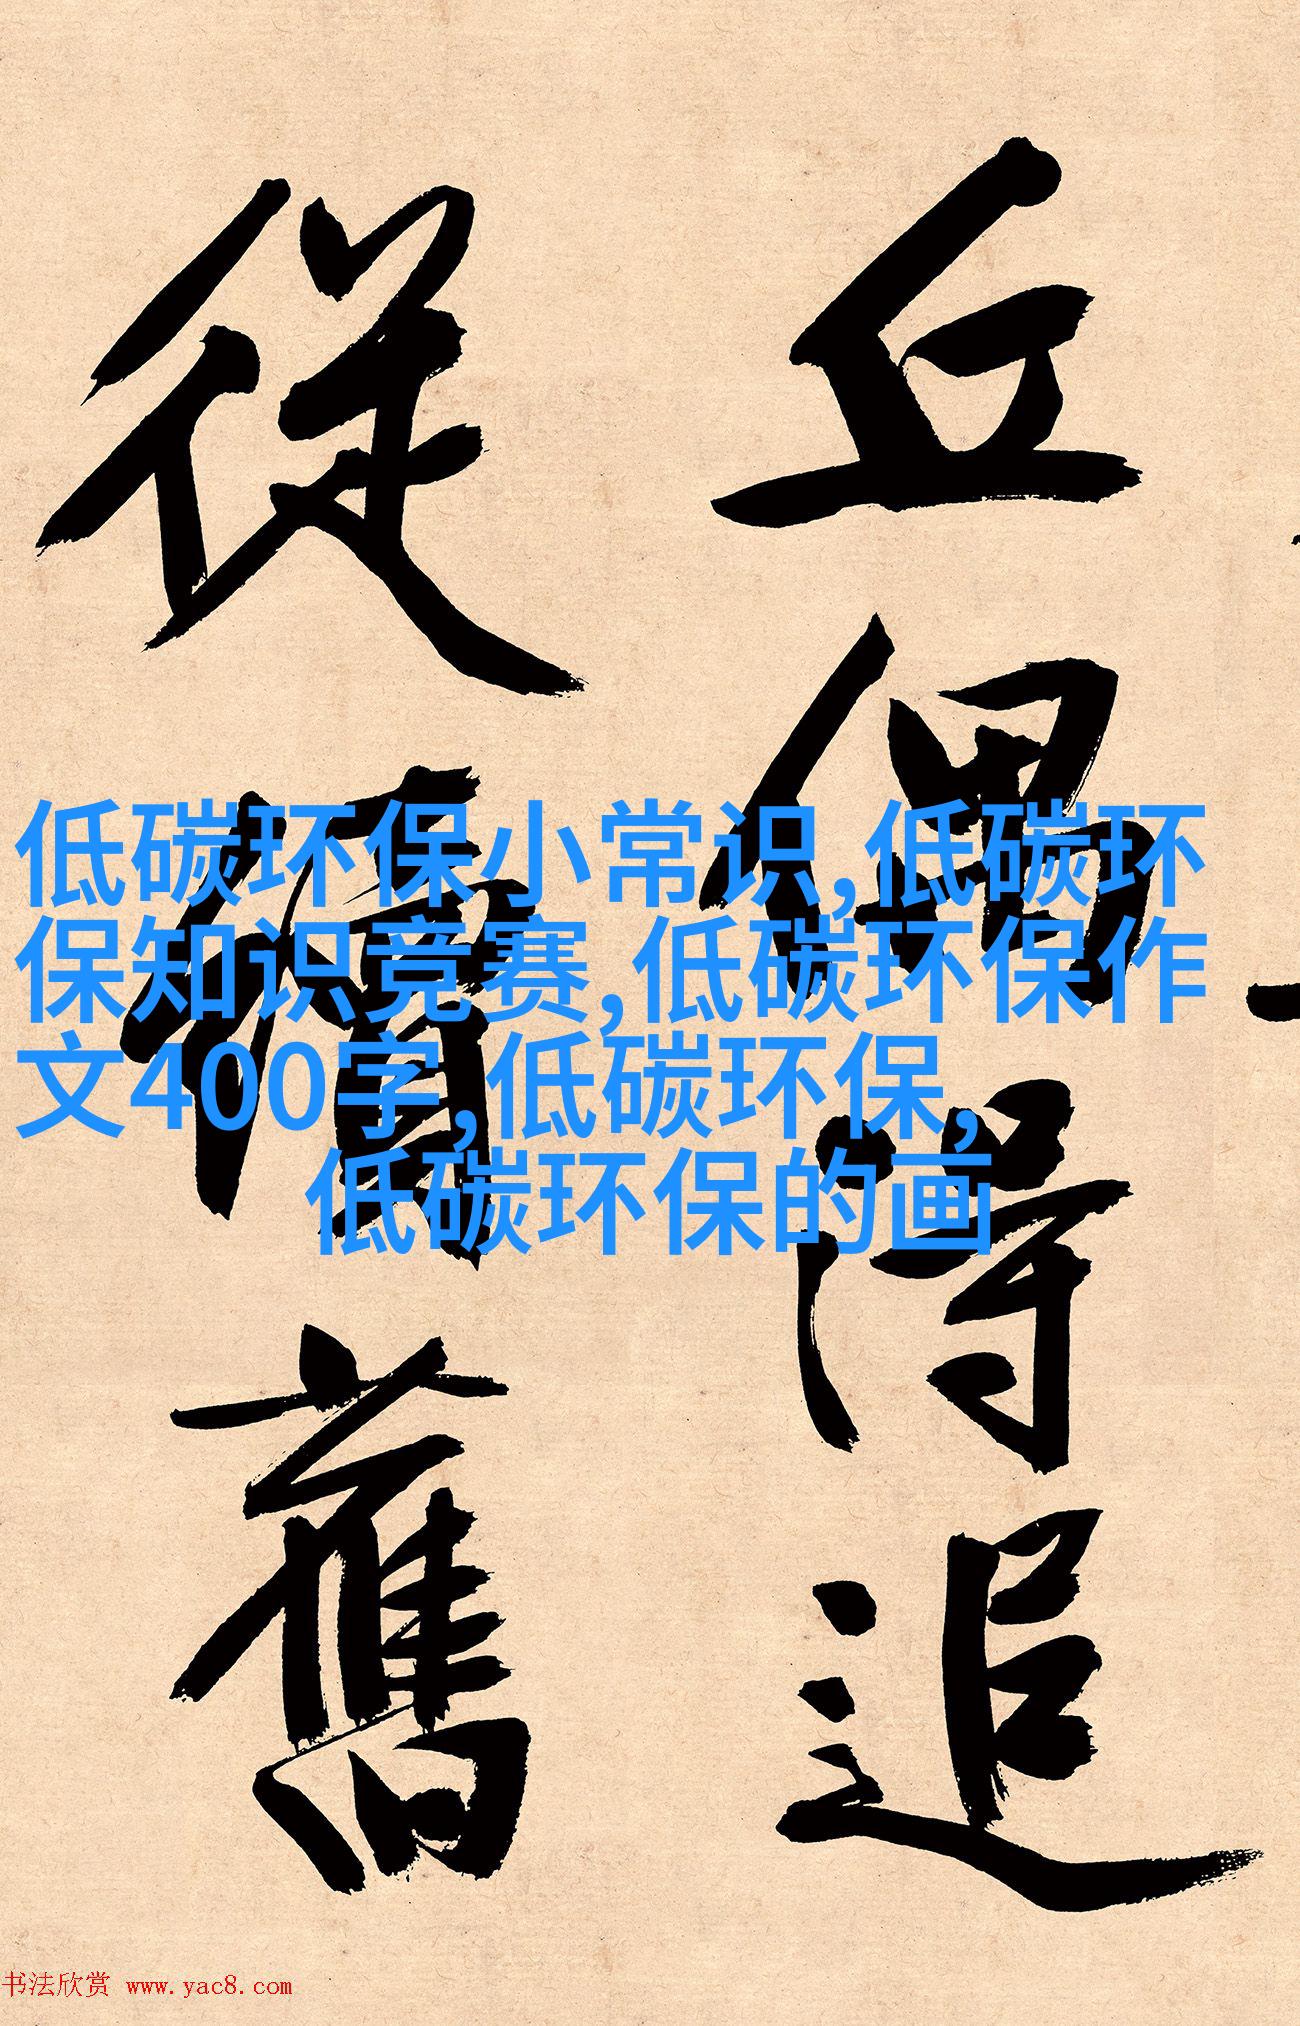 丘偶得追
從舊
低碳环保小常识,低碳环
保知识竞赛,低碳环保作
文400字,低碳环保,
低碳环保的画
书法欣赏 www.yac8.com